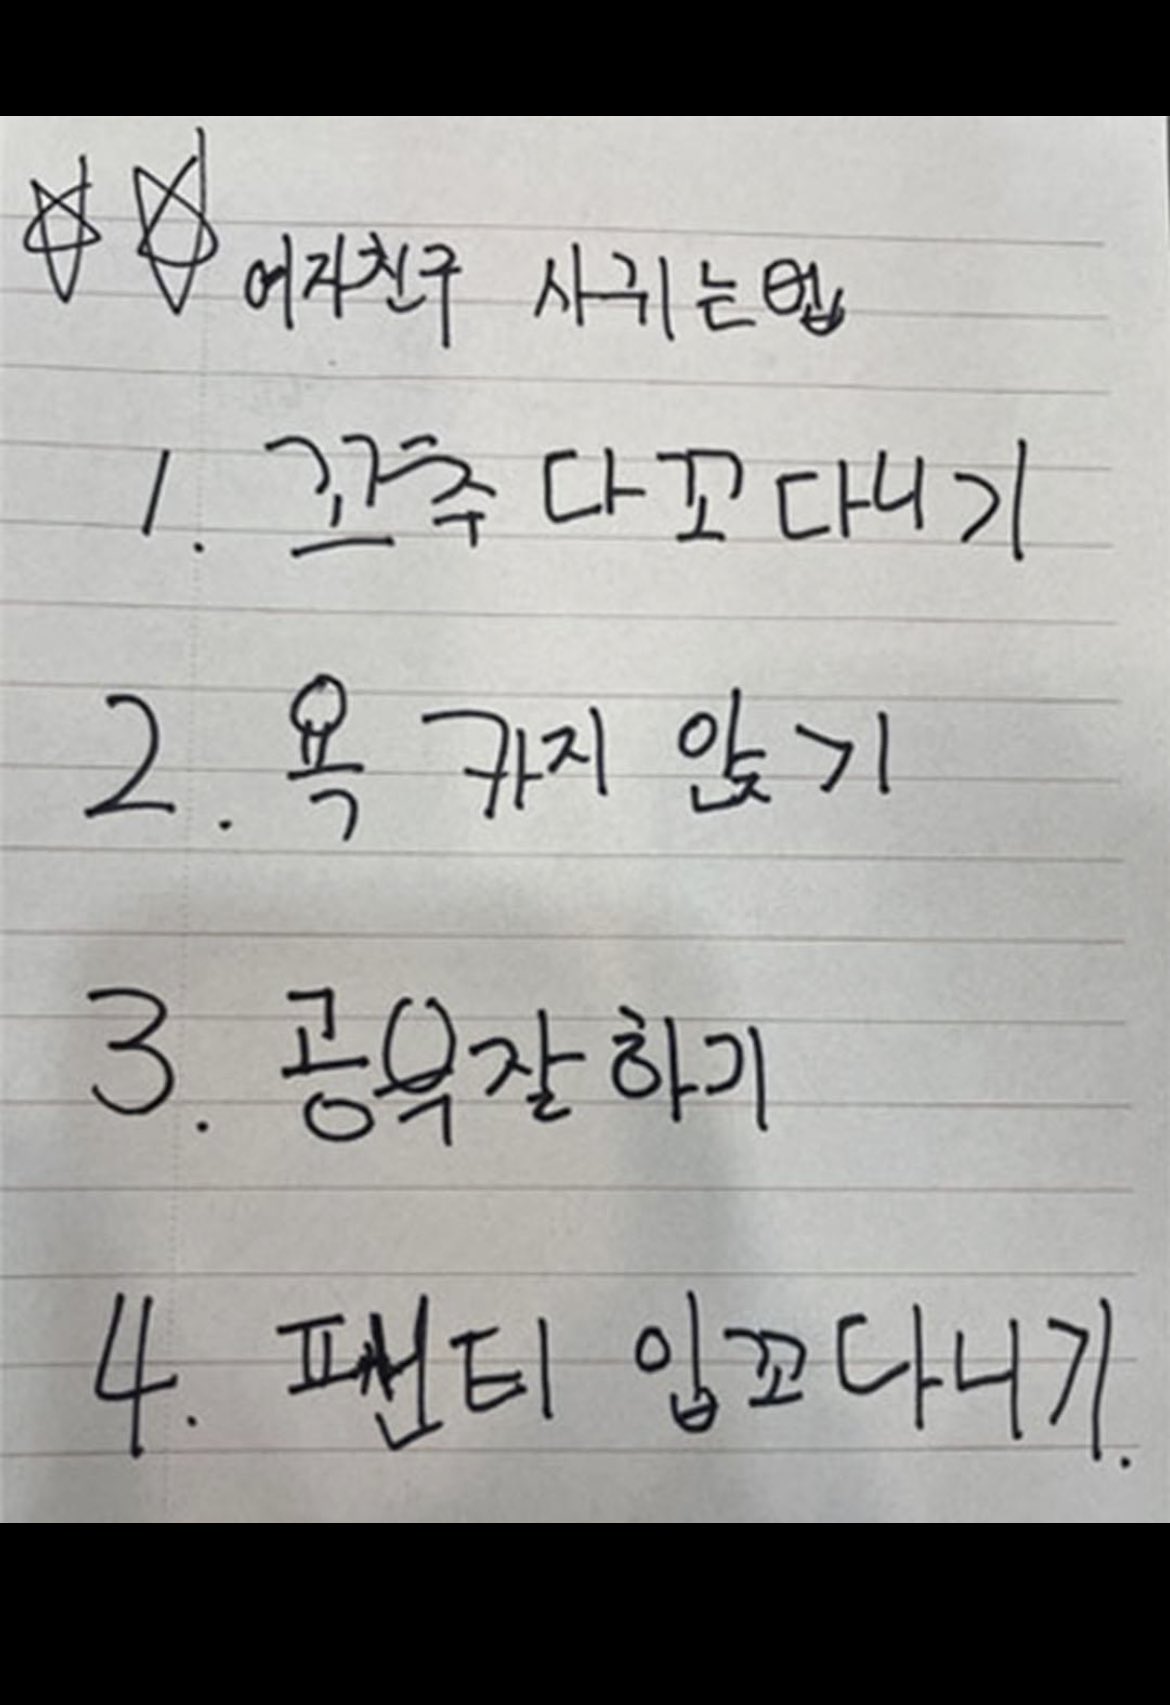 여자친구 사귀는법
1. 꼬추 다꼬다니기
2. 욕 카지 않기
3. 공육잘하기
4. 팬티 입꼬다니기.